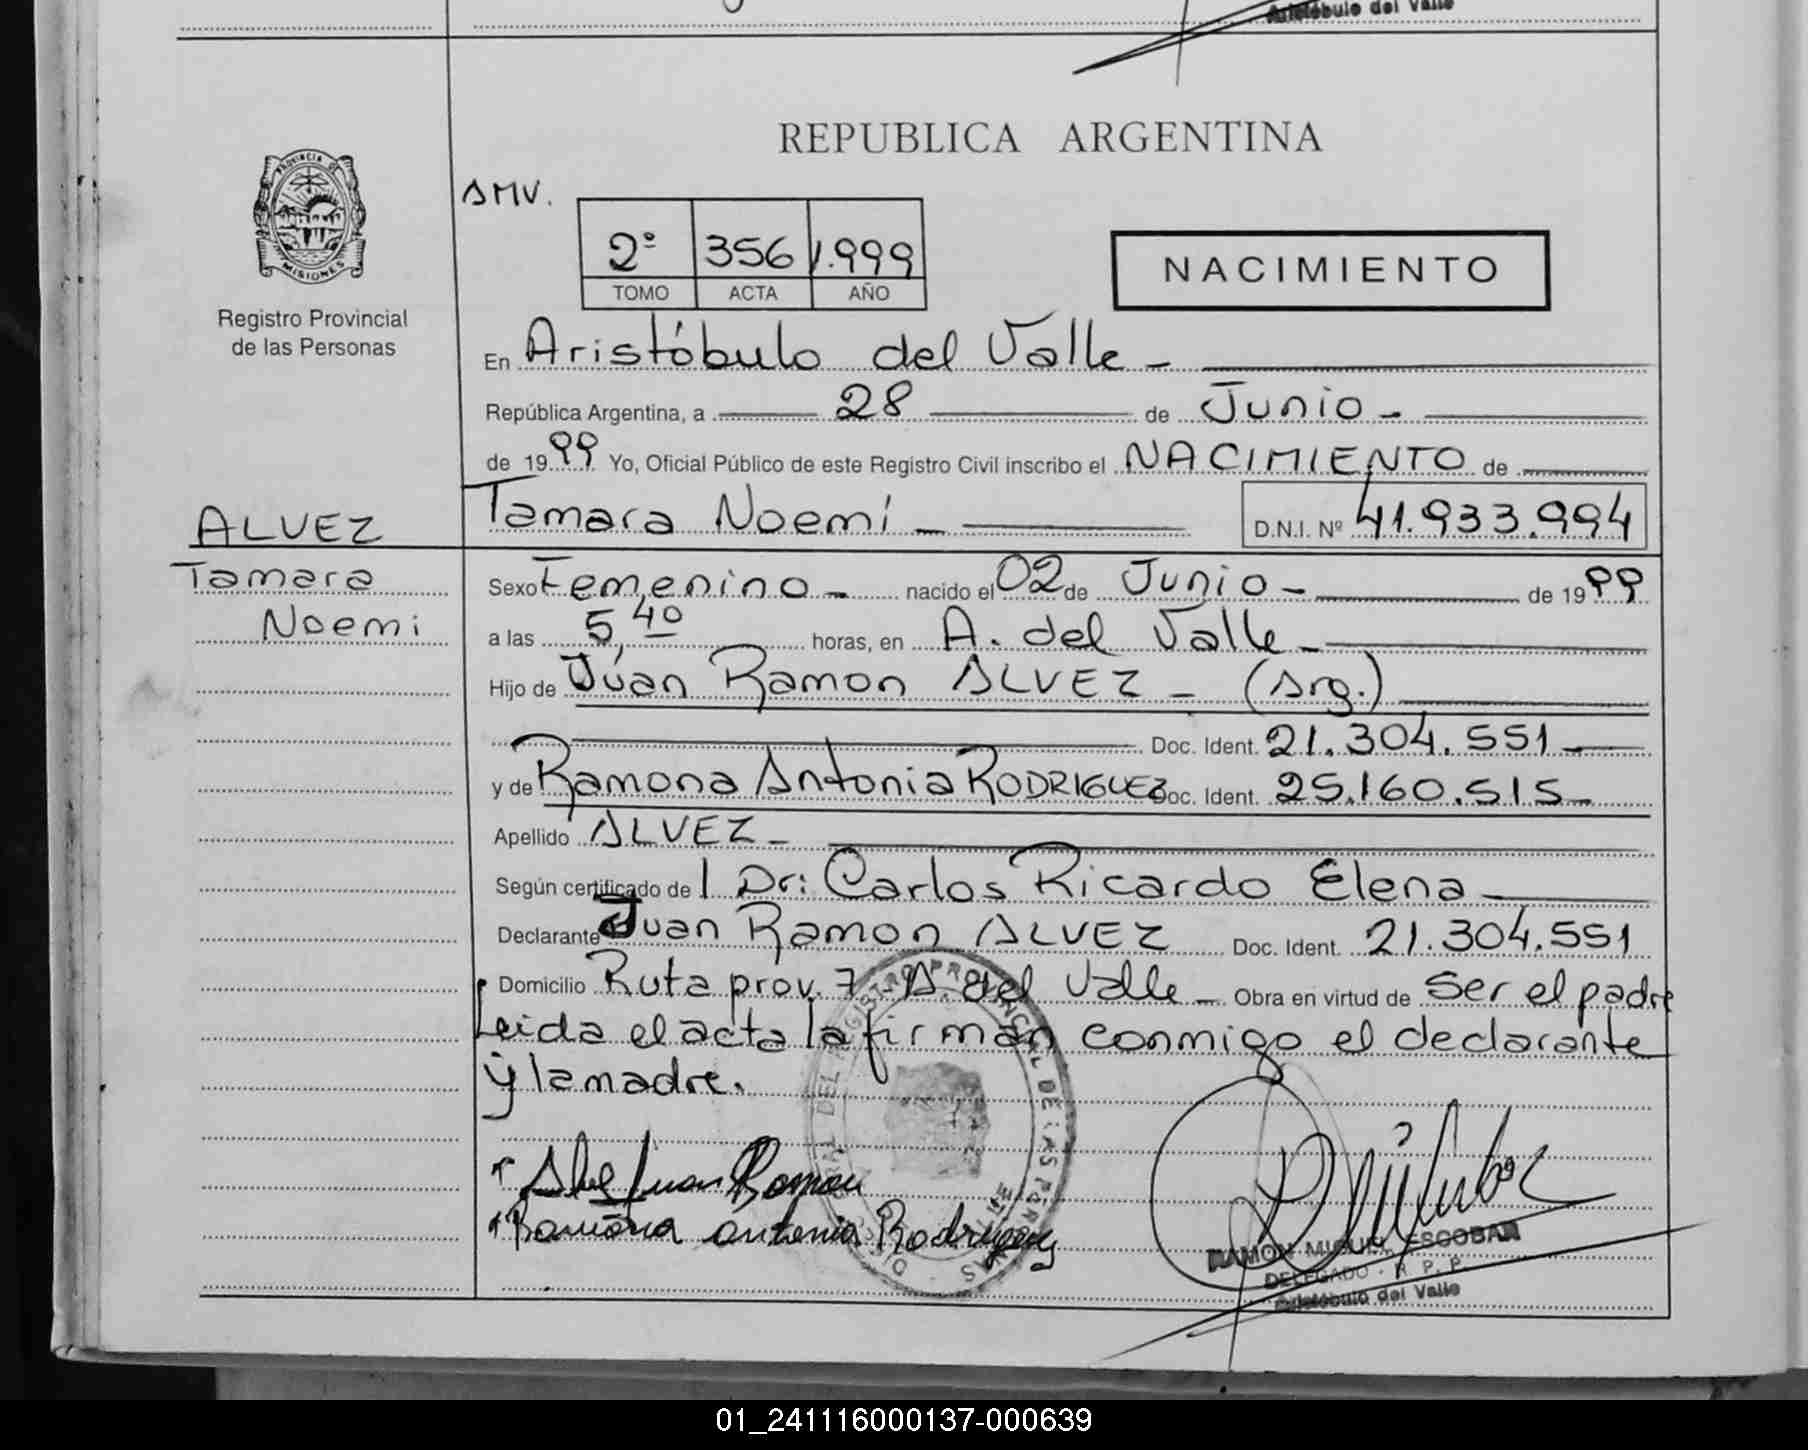 Aristóbulo del Valle
REPUBLICA ARGENTINA
PROVINCIA DE
MISIONES
Registro Provincial
de las Personas
SMV.
2º 356 1.999
TOMO ACTA AÑO
NACIMIENTO
En Aristóbulo del Valle -
República Argentina, a 28 de Junio -
de 1999 Yo, Oficial Público de este Registro Civil inscribo el NACIMIENTO de
ALVEZ
Tamara Noemí - D.N.I. Nº 41.933.994
Tamara
Noemi
Sexo Femenino - nacido el 02 de Junio - de 1999
a las 5,40 horas, en A. del Valle -
Hijo de Juan Ramon ALVEZ - (Arg.)
Doc. Ident. 21.304.551 -
y de Ramona Antonia RODRIGUEZ Doc. Ident. 25.160.515 -
Apellido ALVEZ -
Según certificado de l Dr: Carlos Ricardo Elena -
Declarante Juan Ramon ALVEZ Doc. Ident. 21.304.551
Domicilio Ruta prov. 7 - A. del Valle - Obra en virtud de ser el padre
Leida el acta la firman conmigo el declarante
y la madre.
Juan Ramon
Ramona antonia Rodriguez
RAMON MIGUEL ESCOBAR
DELEGADO - R. P. P.
Aristóbulo del Valle
01_241116000137-000639